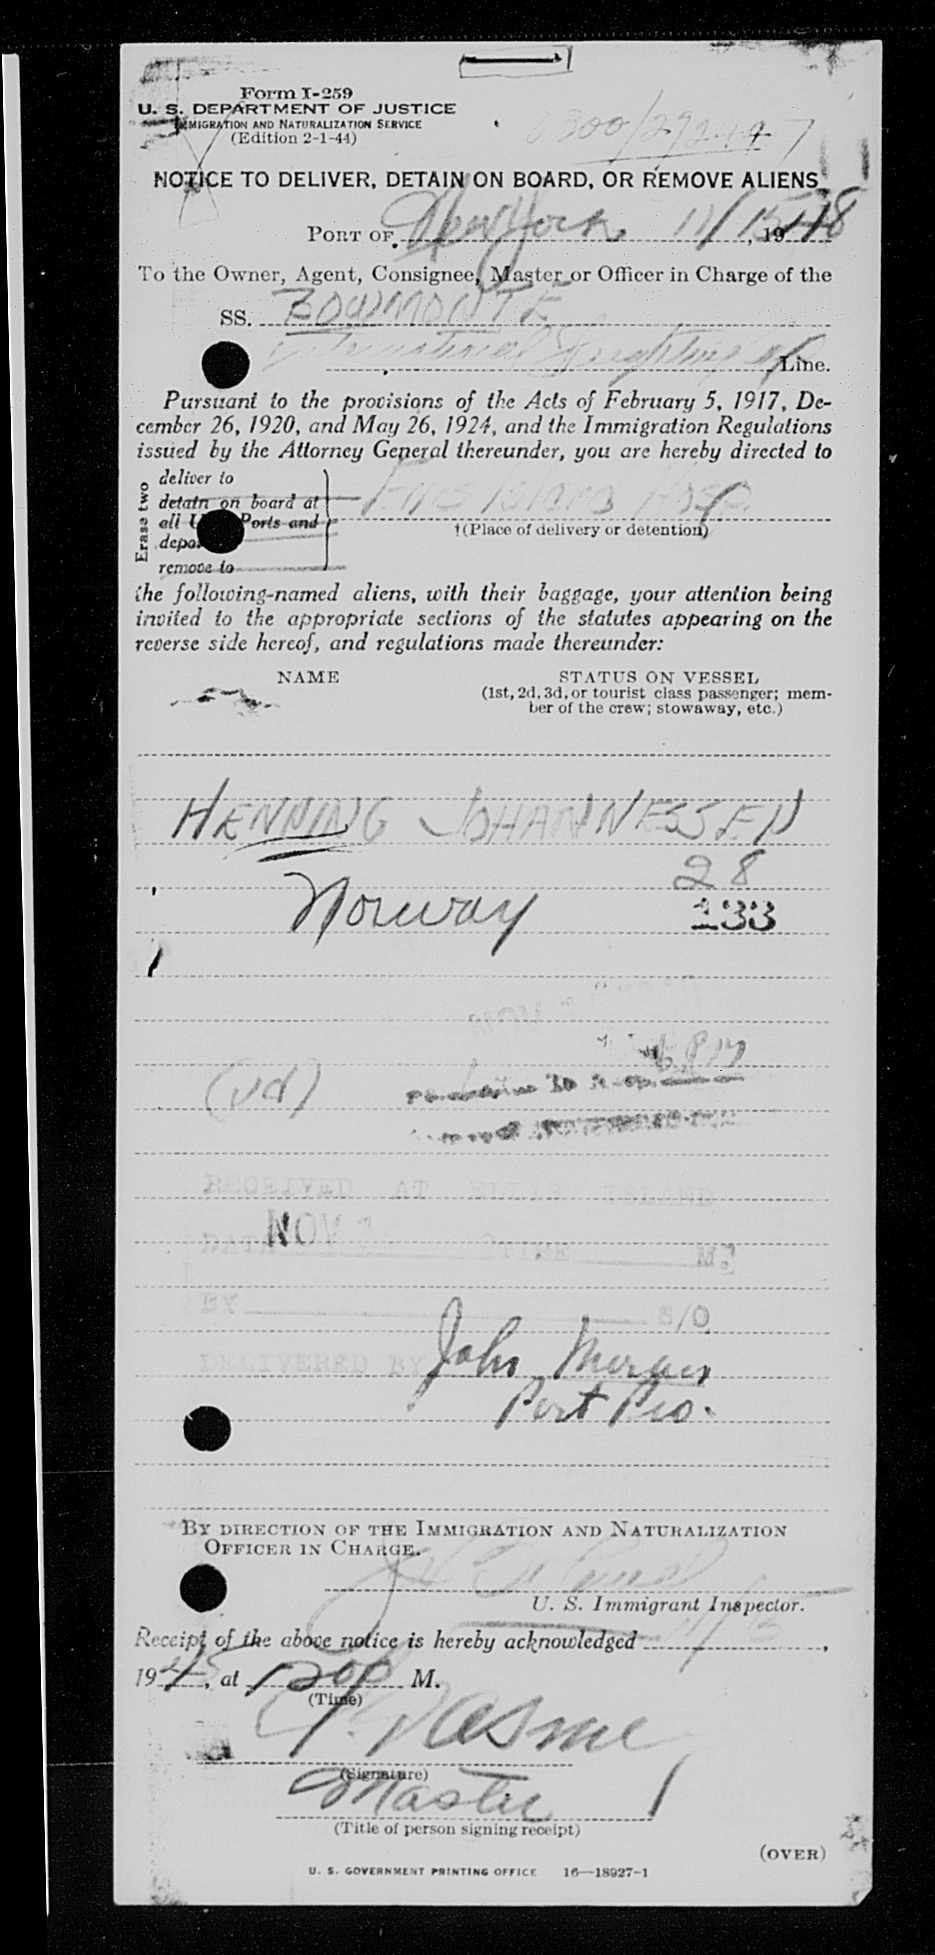 Form I-259
U. S. DEPARTMENT OF JUSTICE
IMMIGRATION AND NATURALIZATION SERVICE
(Edition 2-1-44)
NOTICE TO DELIVER, DETAIN ON BOARD, OR REMOVE ALIENS
PORT OF New York 11/15, 1948
To the Owner, Agent, Consignee, Master or Officer in Charge of the
SS. BOWMONTE
International Line.
Pursuant to the provisions of the Acts of February 5, 1917, De-
cember 26, 1920, and May 26, 1924, and the Immigration Regulations
issued by the Attorney General thereunder, you are hereby directed to
Erase two
deliver to
detain on board at
all Ports and
remove to
Ellis Island Hosp.
†(Place of delivery or detention)
the following-named aliens, with their baggage, your attention being
invited to the appropriate sections of the statutes appearing on the
reverse side hereof, and regulations made thereunder:
NAME STATUS ON VESSEL
(1st, 2d, 3d, or tourist class passenger; mem-
ber of the crew; stowaway, etc.)
HENNING JOHANNESSEN
28
Norway 133
(vd)
RECEIVED AT ELLIS ISLAND
DATE NOV TIME M.
BY S/O
DELIVERED BY John
Port
BY DIRECTION OF THE IMMIGRATION AND NATURALIZATION
OFFICER IN CHARGE.
U. S. Immigrant Inspector.
Receipt of the above notice is hereby acknowledged
19 , at 1200 P M.
(Time)
(Signature)
Master
(Title of person signing receipt)
(OVER)
U. S. GOVERNMENT PRINTING OFFICE 16—18927-1